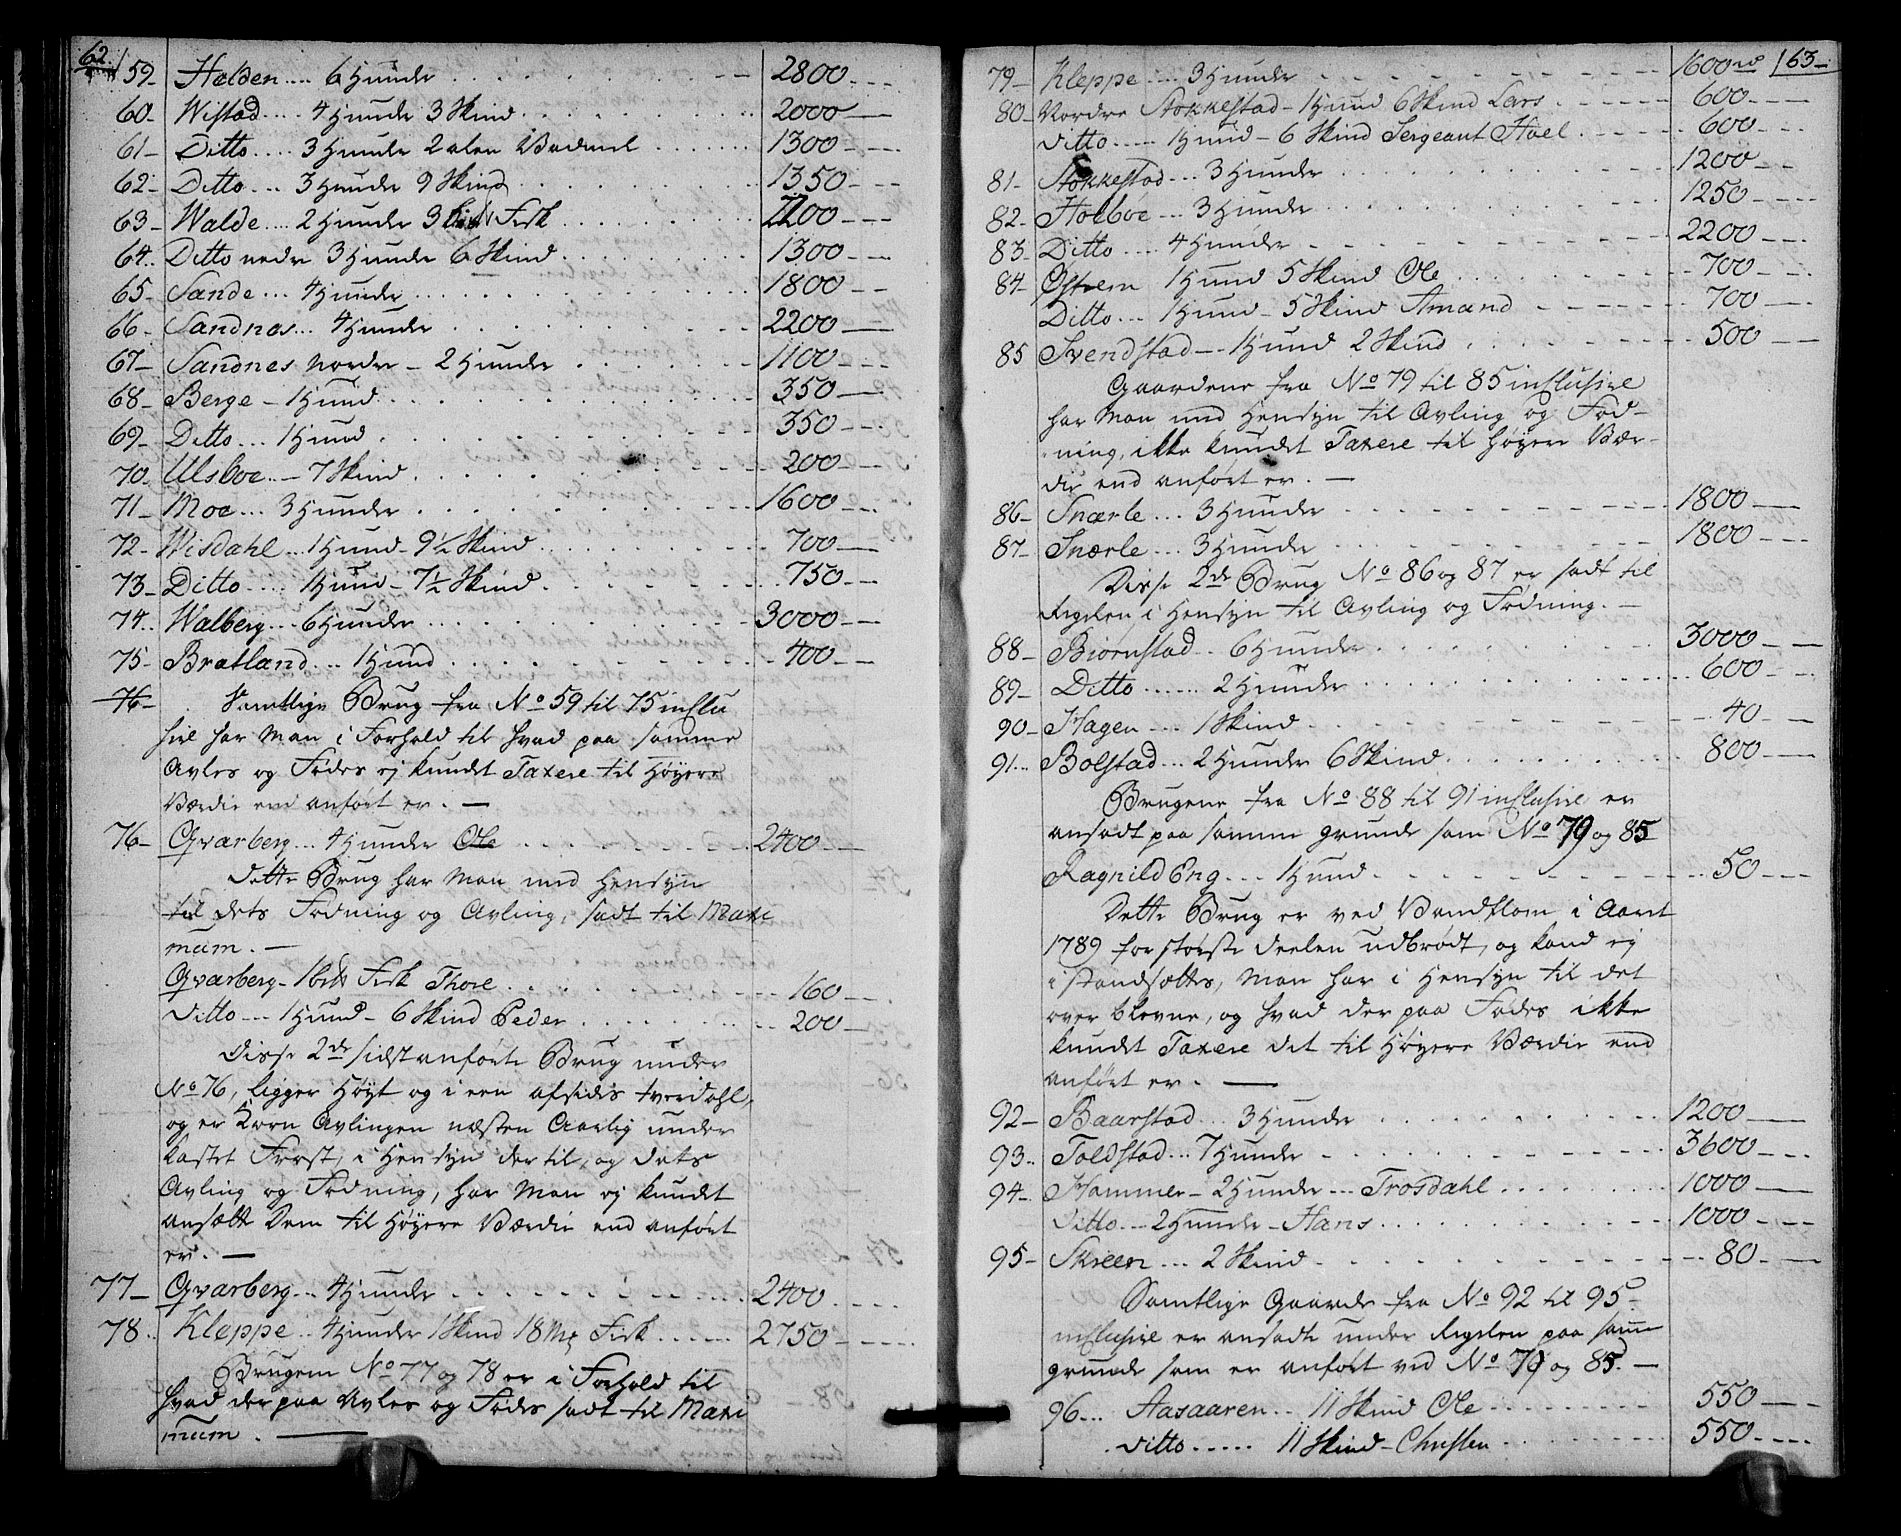 62.
59 Halden .... 6 Hunder . . . . 2800
60 Wistad .... 4 Hunder 3 Skind . . . . 2000
61 Ditto .... 3 Hunder 2 alen Vadmel . . . . 1300
62 Ditto ... 3 Hunder 9 Skind . . . . 1350
63 Walde .... 2 Hunder 3 Fisk . . . .
64 Ditto nedre 3 Hunder 6 Skind . . . . 1300
65 Sande ... 4 Hunder . . . . 1800
66 Sandnæs ... 4 Hunder . . . . 2200
67 Sandnes nordre - 2 Hunder . . . . 1100
68 Berge - 1 Hund . . . . 350
69 Ditto ... 1 Hund . . . . 350
70 Ulsboe .. - 7 Skind . . . . 200
71 Moe ... 3 Hunder . . . . 1600
72 Wisdahl .. 1 Hund - 9½ Skind . . . . 700
73 Ditto .... 1 Hund - 7½ Skind . . . . 750
74 Walberg ... 6 Hunder . . . . 3000
75 Bratland ... 1 Hund . . . . 400
76 Samtlige Brug fra No 59 til 75 inclu
sive har Man i Forhold til hvad paa samme
Avles og Födes ej kundet Taxere til Höyere
Værdie end anfört er. —
76 Qvarberg ... 4 Hunder Ole . . . . 2400
Dette Brug har Man med Hensyn
til dets Födning og Avling, sadt til Maxi
mum. —
Qvarberg - 1 Fisk Thore . . . . 160
Ditto --- 1 Hund - 6 Skind Peder . . . . 200
Disse 2de sidst anförte Brug under
No 76, ligger Höyt og i een afsides tverdahl,
og er Korn Avlingen næsten Aarlig under
kastet Frost, i Hensyn dertil, og dets
Avling og Födning, har Man ej kundet
ansætte Dem til Höyere Værdie end anfört
er. —
77 Qvarberg ... 4 Hunder . . . . 2400
78 Kleppe .. 4 Hunder 1 Skind 18 Mk Fisk . . . . 2750
Brugene No 77 og 78 er i Forhold til
hvad der paa Avles og Födes sadt til Maxi
mum. —
63
79 Kleppe .... 3 Hunder . . . . 1600 rd
80 Nordre Stokkestad - 1 Hund 6 Skind Lars . . . . 600
Ditto ..... 1 Hund - 6 Skind Sergeant Hoel . . . . 600
81 Stokkestad ... 3 Hunder . . . . 1200
82 Holboe ... 3 Hunder . . . . 1250
83 Ditto .... 4 Hunder . . . . 2200
84 Östrem 1 Hund 5 Skind Ole . . . . 700
Ditto ... 1 Hund - 5 Skind Amand . . . . 700
85 Svendstad - 1 Hund 2 Skind . . . . 500
Gaardene fra No 79 til 85 inclusive
har Man med Hensyn til Avling og Föd-
ning, ikke kundet Taxere til höyere Vær-
die end anfört er. —
86 Snærle ... 3 Hunder . . . . 1800
87 Snærle ... 3 Hunder . . . . 1800
Disse 2de Brug No 86 og 87 er sadt til
Ligelen i Hensyn til Avling og Födning. —
88 Biørnstad .. 6 Hunder . . . . 3000
89 Ditto ...... 2 Hunder . . . . 600
90 Hagen --- 1 Skind . . . . 40
91 Bolstad ... 2 Hunder 6 Skind . . . . 800
Brugene fra No 88 til 91 inclusive er
ansadt paa samme grunde som No 79 og 85
Ragnild Eng ... 1 Hund . . . . 50
Dette Brug er ved Vandflom i Aaret
1789 for störste deelen udbrödt, og kand ej
istandsættes, Man har i Hensyn til det
over blevne, og hvad der paa Födes ikke
kundet Taxere det til Höyere Værdie end
anfört er. —
92 Baarstad ... 3 Hunder . . . . 1200
93 Toldstad ... 7 Hunder . . . . 3600
94 Hammer - 2 Hunder ... Frosdahl . . . . 1000
Ditto --- 2 Hunder - Hans . . . . 1000
95 Skreen ... 2 Skind . . . . 80
Samtlige Gaarde fra No 92 til 95
inclusive er ansadte under Ligelen paa samme
grunde som er anfört ved No 79 og 85. —
96 ... Aasaaren .. 11 Skind Ole . . . . 550
Ditto ..... 11 Skind - Christen . . . . 550